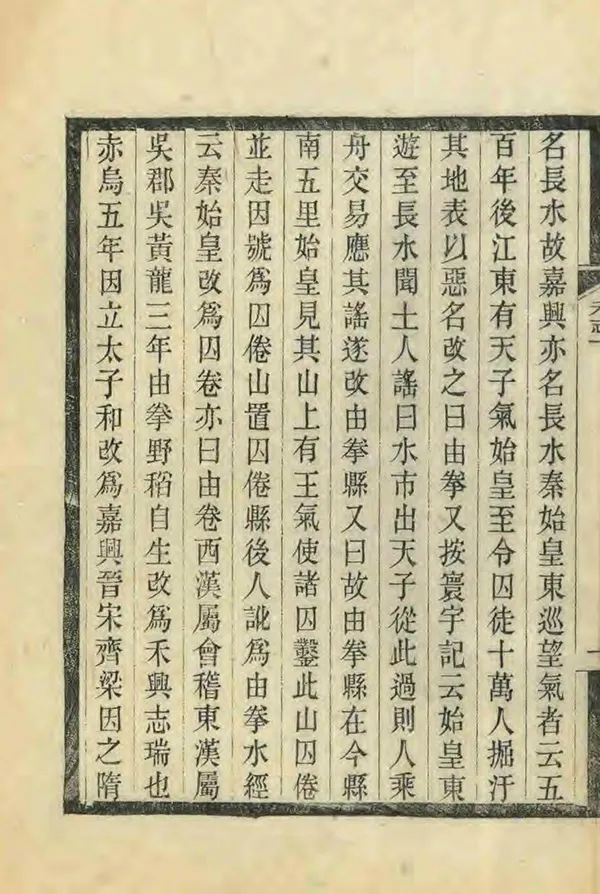 名長水故嘉興亦名長水秦始皇東巡望氣者云五
百年後江東有天子氣始皇至令囚徒十萬人掘汙
其地表以惡名改之曰由拳又按寰宇記云始皇東
遊至長水聞土人謠曰水市出天子從此過則人乘
舟交易應其謠遂改由拳縣又曰故由拳縣在今縣
南五里始皇見其山上有王氣使諸囚鑿此山囚倦
並走因號爲囚倦山置囚倦縣後人訛爲由拳水經
云秦始皇改爲囚卷亦曰由卷西漢屬會稽東漢屬
吳郡吳黃龍三年由拳野稻自生改爲禾興志瑞也
赤烏五年因立太子和改爲嘉興晉宋齊梁因之隋